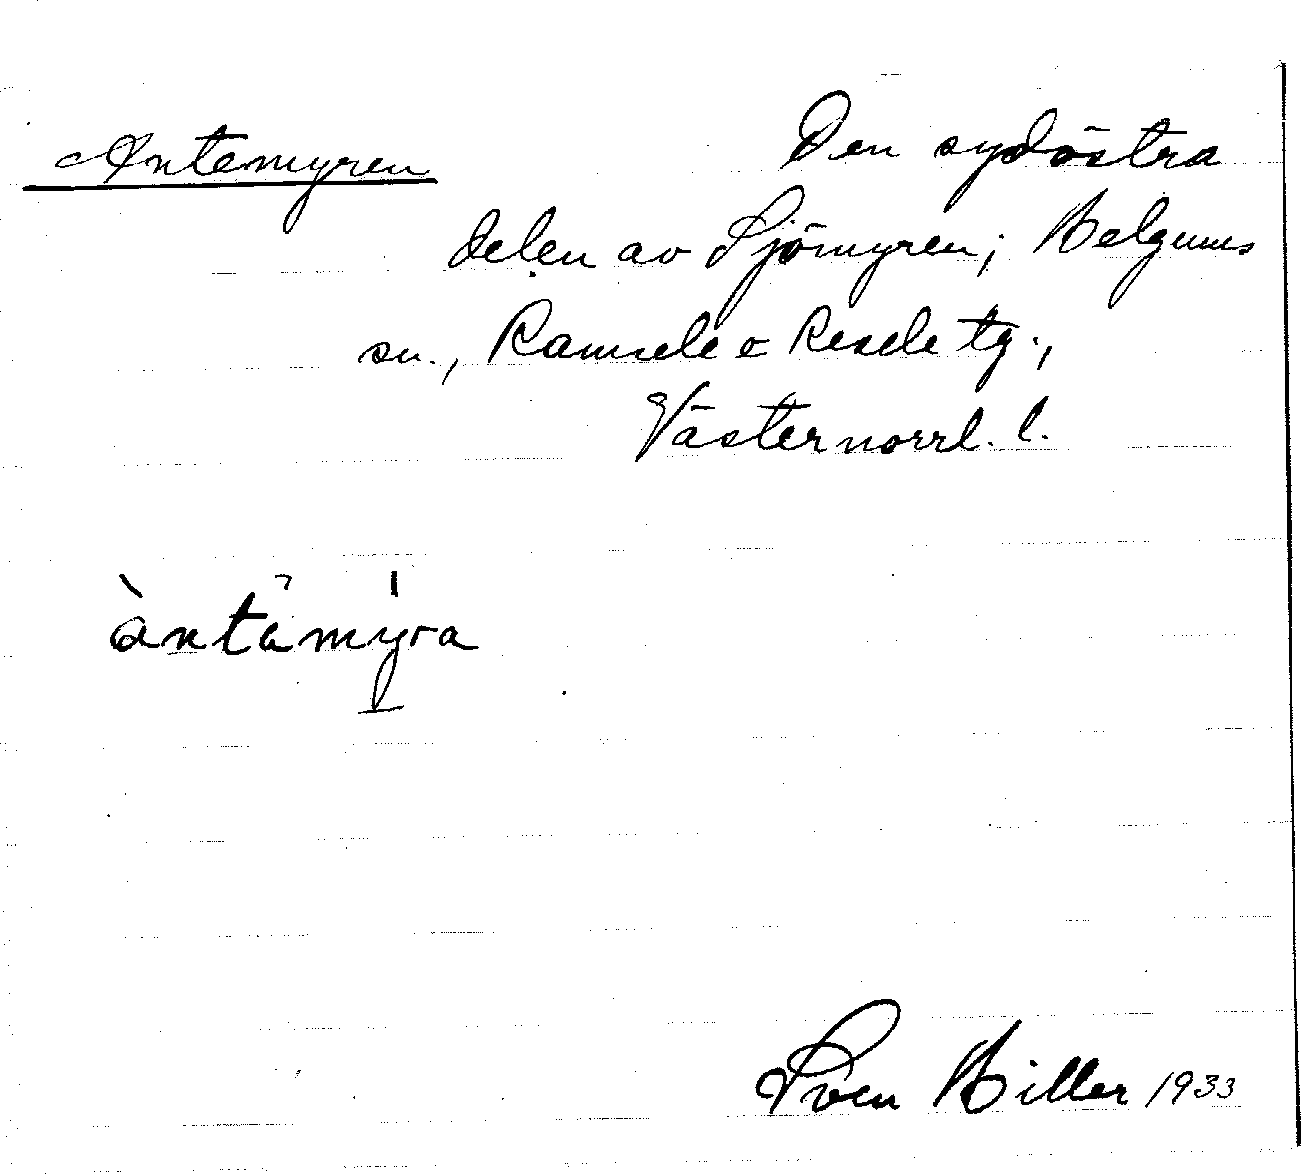 Antemyren Den sydöstra
delen av Sjömyren; Helgums
sn., Ramsele o Resele tg.,
Västernorrl. l.
àntämýra
Sven Hiller 1933